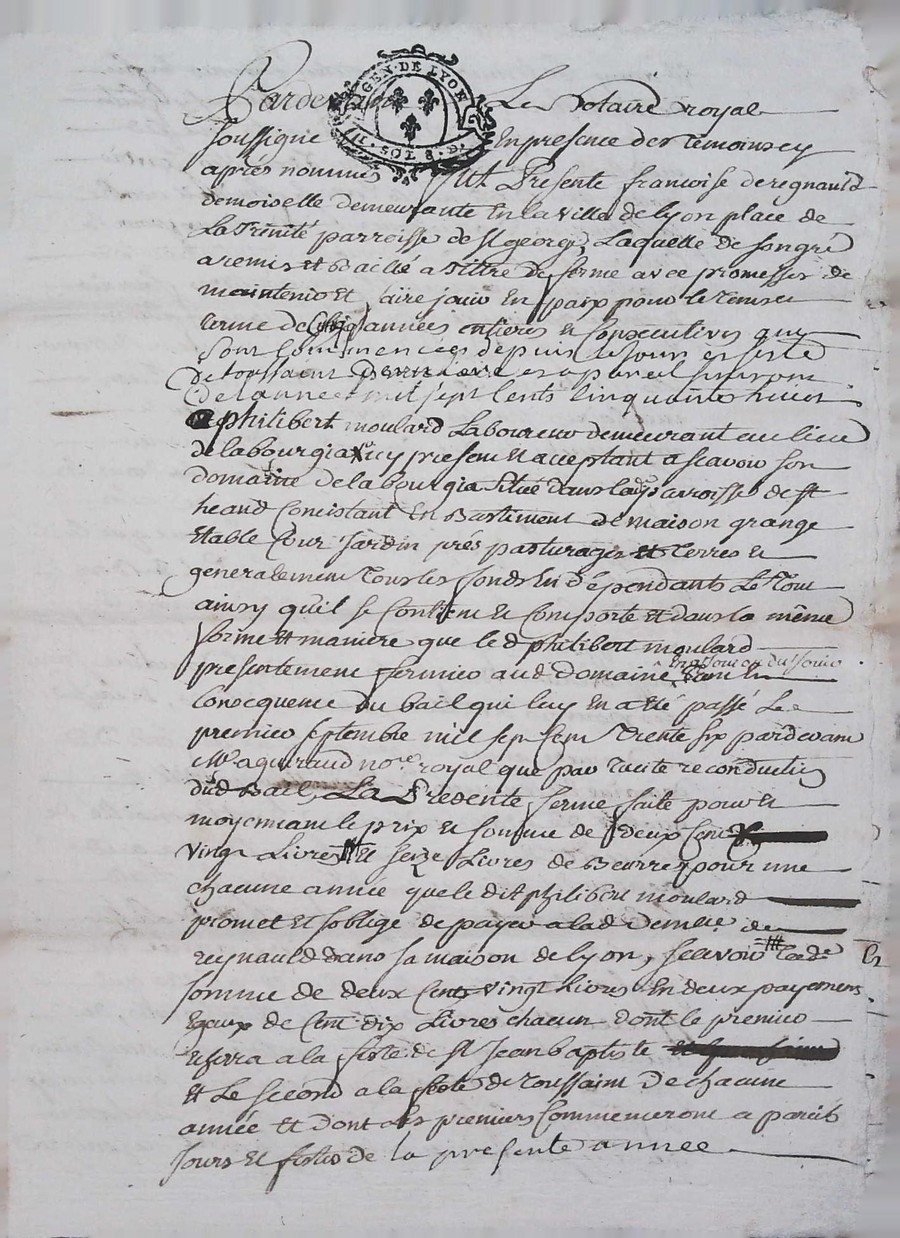 GEN · DE LYON
SOL 8. D.
Pardevant Le Notaire royal
soussigné En presence des temoins cy
apres nommés fut Presente francoise deregnauld
demoiselle demeurante En la ville de lyon place de
La Trinité parroisse de st george, Laquelle de son gré
a remis et Baillé a tittre de ferme avec promesses de
maintenir et faire jouir En paix pour le tems et
terme de Cinq années entieres et Consecutives qui
sont Commencées depuis le jour et feste
de toussaint derniere et a pareil finiront
de l'année mil sept cents cinquante
a philibert moulard Laboureur demeurant au lieu
de la bourgia icy present et acceptant a scavoir son
domaine de la bourgia situé dans lad parroisse de st
heand Concistant En Bastiment de maison grange
Etable Cour Jardin prés pasturages et Terres et
generalement Tous les fonds En dépendants Le Tout
ainsy qu'il se Contient et Comporte et dans la même
forme et maniere que le d philibert moulard
presentement fermier aud domaine En a joui ou du jouir tant En
Consequence du bail qui luy En a eté passé Le
premier septembre mil sept Cent Trente six pardevant
Me aguiraud nore royal que par tacite reconduction
dud Bail, La Presente ferme faite pour et
moyennant le prix et somme de deux Cent
vingt Livres et seize Livres de Beurre pour une
chacune année que le dit philibert moulard
promet et soblige de payer a lad Demlle de
reynauld dans sa maison de lyon, scavoir lade
somme de deux Cents vingt Livres En deux payements
Egaux de Cent dix Livres chacun dont le premier
se fera a la feste de St Jean baptiste
et Le second a la feste de Toussaint De chacune
année Et dont les premiers Commenceront a pareils
Jours et festes de la presente annee